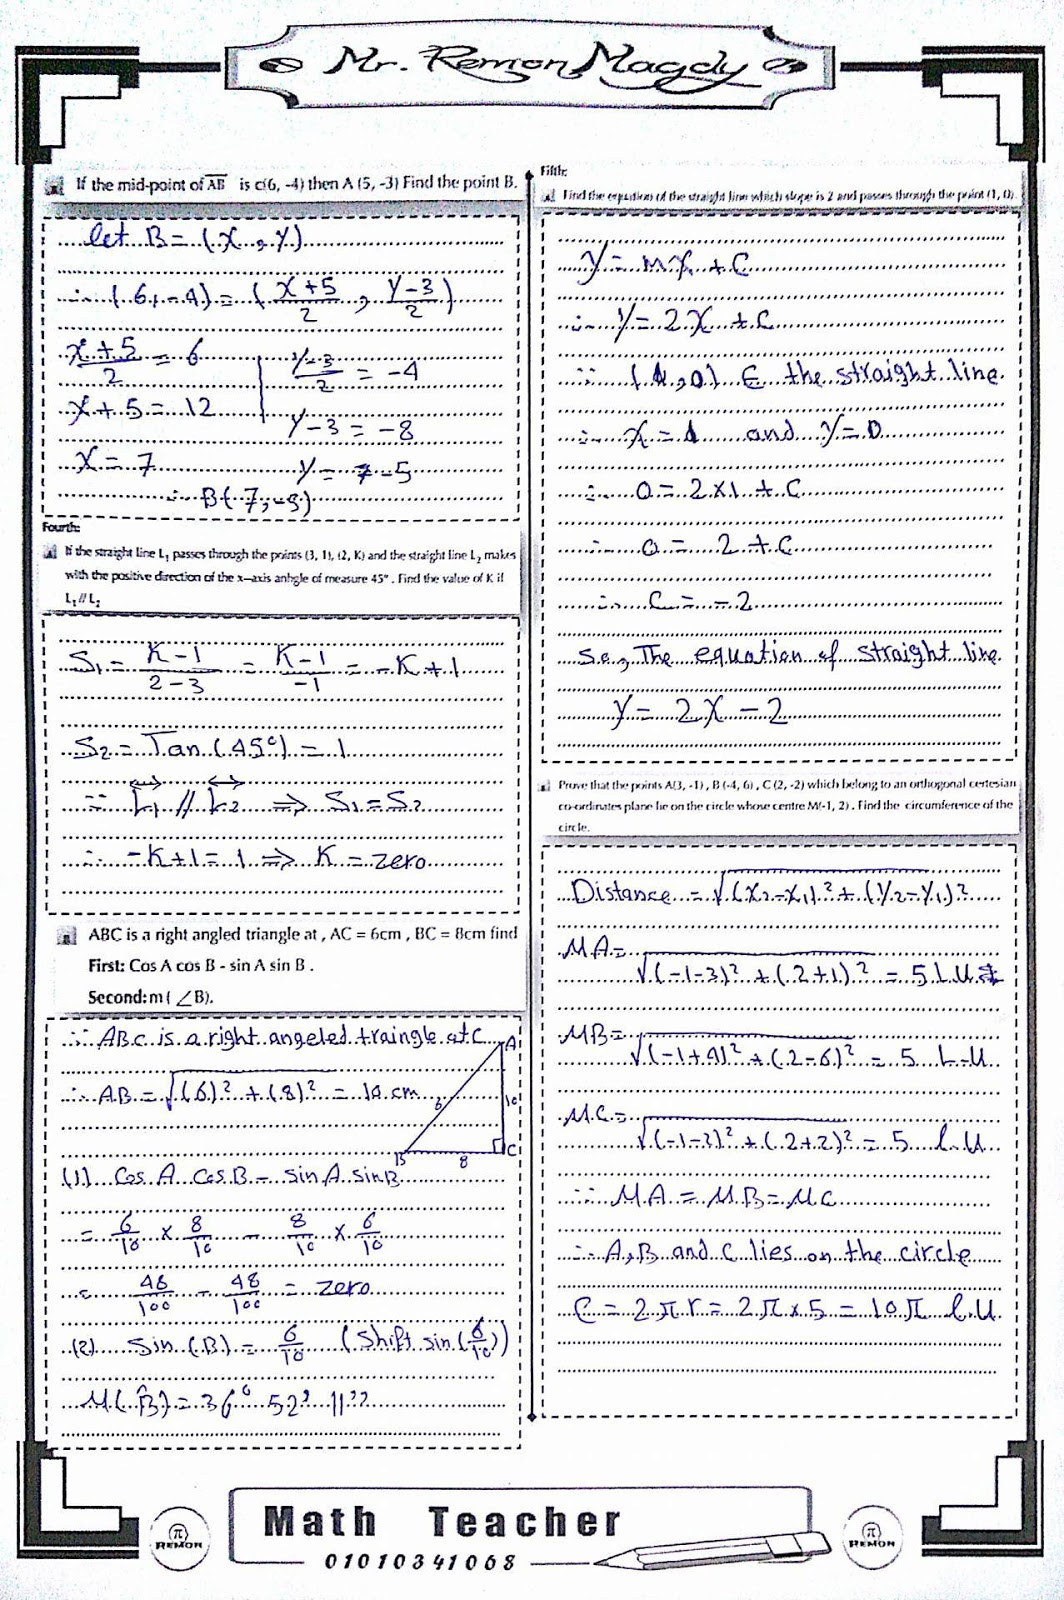 Mr. Remon Magdy
If the mid-point of AB is c(6, -4) then A (5, -3) Find the point B.
let B = (X , Y)
∴ (6, -4) = ( X+5/2 , Y-3/2 )
X+5/2 = 6
X + 5 = 12
X = 7
Y-3/2 = -4
Y - 3 = -8
Y = -5
∴ B(7, -5)
Fourth:
If the straight line L1 passes through the points (3, 1), (2, K) and the straight line L2 makes
with the positive direction of the x–axis anhgle of measure 45° . Find the value of K if
L1 // L2
S1 = K-1/2-3 = K-1/-1 = -K+1
S2 = Tan (45°) = 1
∵ L1 // L2 ⇒ S1 = S2
∴ -K+1 = 1 ⇒ K = zero
ABC is a right angled triangle at , AC = 6cm , BC = 8cm find
First: Cos A cos B - sin A sin B .
Second: m( ∠B).
∵ ABC is a right angeled traingle at C
∴ AB = √(6)² + (8)² = 10 cm
A
6
10
B
8
C
(1) Cos A Cos B - sin A sin B
= 6/10 × 8/10 - 8/10 × 6/10
= 48/100 - 48/100 = zero
(2) Sin (B) = 6/10 (Shift sin (6/10))
M(B̂) = 36° 52' 11''
Fifth:
Find the equation of the straight line which slope is 2 and passes through the point (1, 0).
Y = mX + C
∴ Y = 2X + C
∵ (1, 0) ∈ the straight line
∴ X = 1 and Y = 0
∴ 0 = 2×1 + C
∴ 0 = 2 + C
∴ C = -2
So, The equation of straight line
Y = 2X - 2
Prove that the points A(3, -1) , B (-4, 6) , C (2, -2) which belong to an orthogonal certesian
co-ordinates plane lie on the circle whose centre M(-1, 2) . Find the circumference of the
circle.
Distance = √(X2-X1)² + (Y2-Y1)²
MA =
√(-1-3)² + (2+1)² = 5 L.U
MB =
√(-1+4)² + (2-6)² = 5 L.U
MC =
√(-1-3)² + (2+2)² = 5 L.U
∵ MA = MB = MC
∴ A, B and C lies on the circle
C = 2πr = 2π×5 = 10π L.U
Math Teacher
01010341068
π
REMON
π
REMON